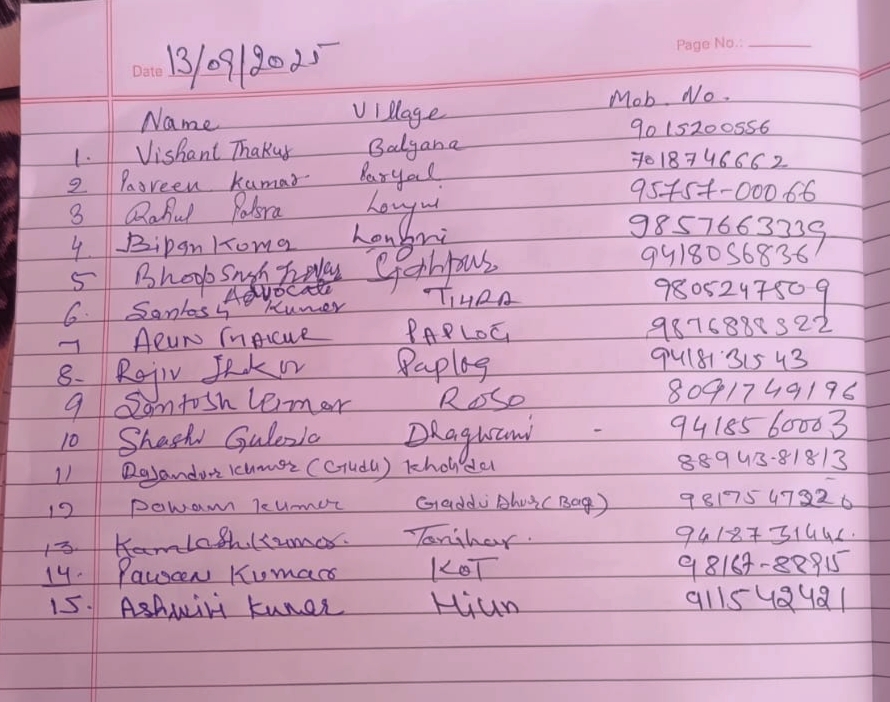 Page No.:
Date 13/09/2025
Name Village Mob. No.
1. Vishant Thakur Balyana 9015200556
2 Parveen Kumar Paryal 7018746662
3 Rahul Palsra Longni 95757-00066
4. Bipan Kumar Longni 9857663339
5 Bhoop Singh Gahpur 9418056836
Advocate
6. Santosh Kumar TIHRA 9805247509
7 ARUN THAKUR PAPLOG 9876888322
8- Rajiv Thakur Paplog 9418131543
9 Santosh Kumar ROSO 8091749196
10 Shashi Guleria Dhagwani - 9418560003
11 Rajandur Kumar (Gudu) Kholdal 88943-81813
12 Pawan Kumar Gaddidhur (Bag) 9817547326
13. Kamlesh Kumar. Tanihar. 9418731446.
14. Pawan Kumar KOT 98167-88915
15. Ashwini Kumar Hiun 911542421